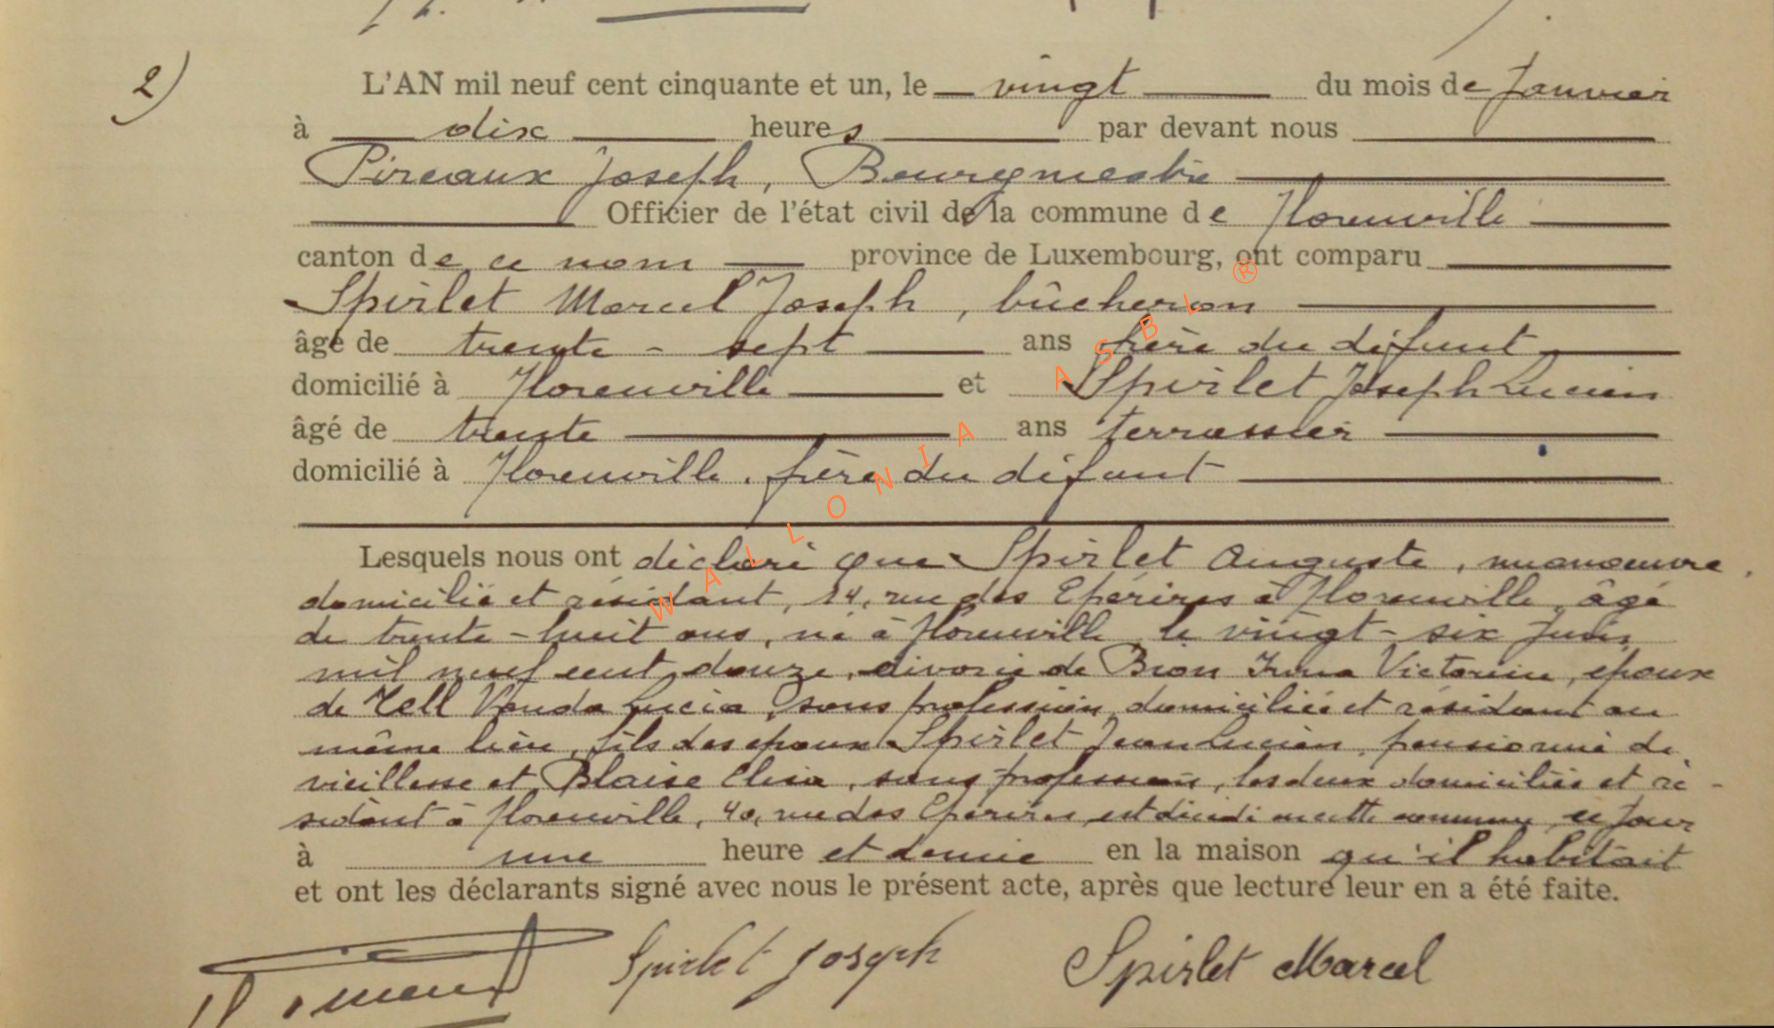 2)
L'AN mil neuf cent cinquante et un, le vingt du mois de Janvier
à dix heures par devant nous
Pireaux Joseph, Bourgmestre
Officier de l'état civil de la commune de Florenville
canton de ce nom province de Luxembourg, ont comparu
Spirlet Marcel Joseph, bûcheron
âgé de trente-sept ans frère du défunt
domicilié à Florenville et Spirlet Joseph Lucien
âgé de trente ans terrassier
domicilié à Florenville, frère du défunt
Lesquels nous ont déclaré que Spirlet Auguste, manoeuvre
domicilié et résidant, 14, rue des Epérires à Florenville, âgé
de trente-huit ans, né à Florenville le vingt-six Juin
mil neuf cent douze, divorcé de Bion Irma Victorine, époux
de Zell Vanda Lucia, sans profession, domiciliée et résidant au
même lieu, fils des époux Spirlet Jean Lucien, pensionné de
vieillesse et Blaise Elisa, sans profession, les deux domiciliés et ré-
sidant à Florenville, 40, rue des Epérires, est décédé en cette commune, ce jour
à une heure et demie en la maison qu'il habitait
et ont les déclarants signé avec nous le présent acte, après que lecture leur en a été faite.
Spirlet Joseph Spirlet Marcel
WALLONIA ASBL ®